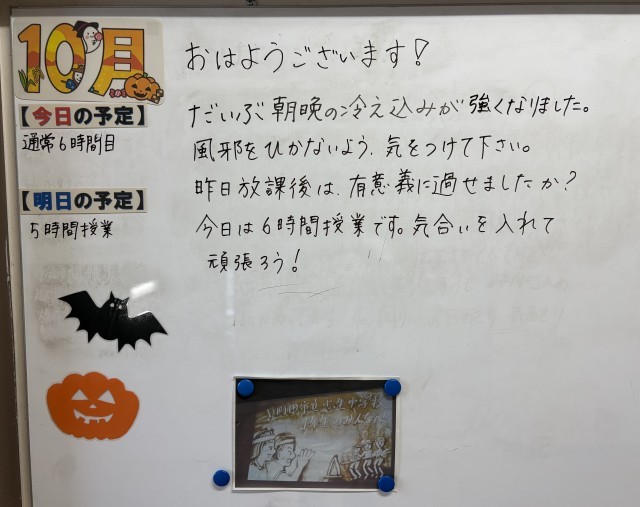 10月
おはようございます!
【今日の予定】
通常6時間目
だいぶ朝晩の冷え込みが強くなりました。
風邪をひかないよう、気をつけて下さい。
【明日の予定】
5時間授業
昨日放課後は、有意義に過せましたか?
今日は6時間授業です。気合いを入れて
頑張ろう!